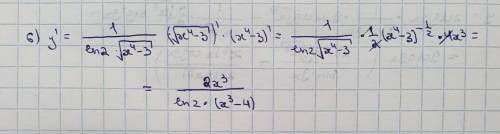 6) y' = \frac{1}{\ln 2 \cdot \sqrt{x^4-3}} \cdot (\sqrt{x^4-3})' \cdot (x^4-3)' = \frac{1}{\ln 2 \sqrt{x^4-3}} \cdot \frac{1}{2} (x^4-3)^{-\frac{1}{2}} \cdot 4x^3 =
= \frac{2x^3}{\ln 2 \cdot (x^3-4)}